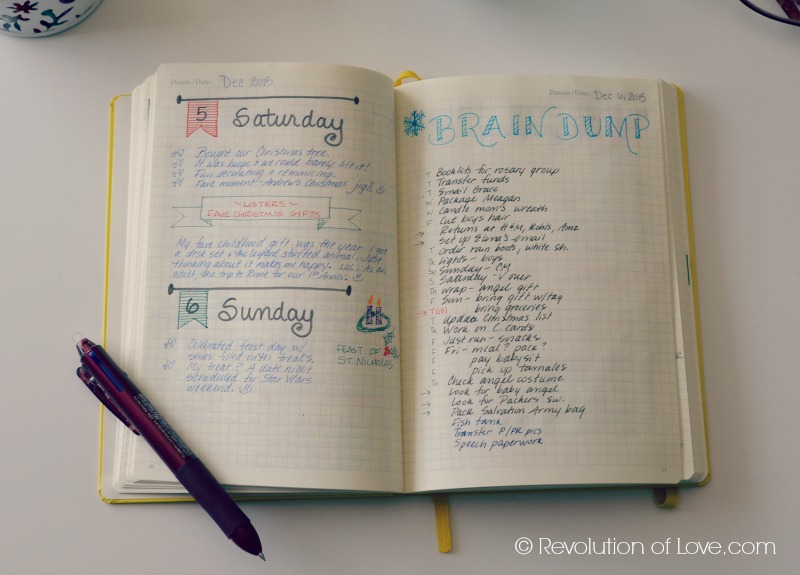 Datum / Date: Dec 2015
5 Saturday
Bought our Christmas tree.
It was huge & we could barely lift it!
Fun decorating & reminiscing.
Fave moment - Andrew's Christmas jig!!
~LISTERS~
FAVE CHRISTMAS GIFTS
My fave childhood gift was the year I got
a desk set & the leopard stuffed animal. Just
thinking about it makes me happy. LOL. As an
adult, the trip to Rome for our 1st Anniv.
6 Sunday
Celebrated feast day w/
shoes filled with treats.
My treat? A date night
scheduled for Star Wars
weekend.
FEAST OF
ST. NICHOLAS
Datum / Date: Dec 6, 2015
BRAIN DUMP
T Booklets for rosary group
T Transfer funds
T Email Grace
W Package Meagan
W Candle mom's wreath
F Cut boys hair
→ Returns at H&M, Kohls, Amz
→ Set up Elena's email
T Order rain boots, white sh.
Th Lights - boys
Su Sunday - CM
S Saturday - V over
Th wrap - angel gift
F Sun - bring gift w/tag
→ T(15) bring groceries
T Update Christmas list
Th Work on C. cards
F Just run - snacks
F Fri - meal? pack?
F pay babysit
F pick up tamales
Th Check angel costume
→ Look for baby angel
→ Look for Packers sw.
→ Pack Salvation Army bag
Fish tank
Transfer P/PR pics
Speech paperwork
© Revolution of Love.com